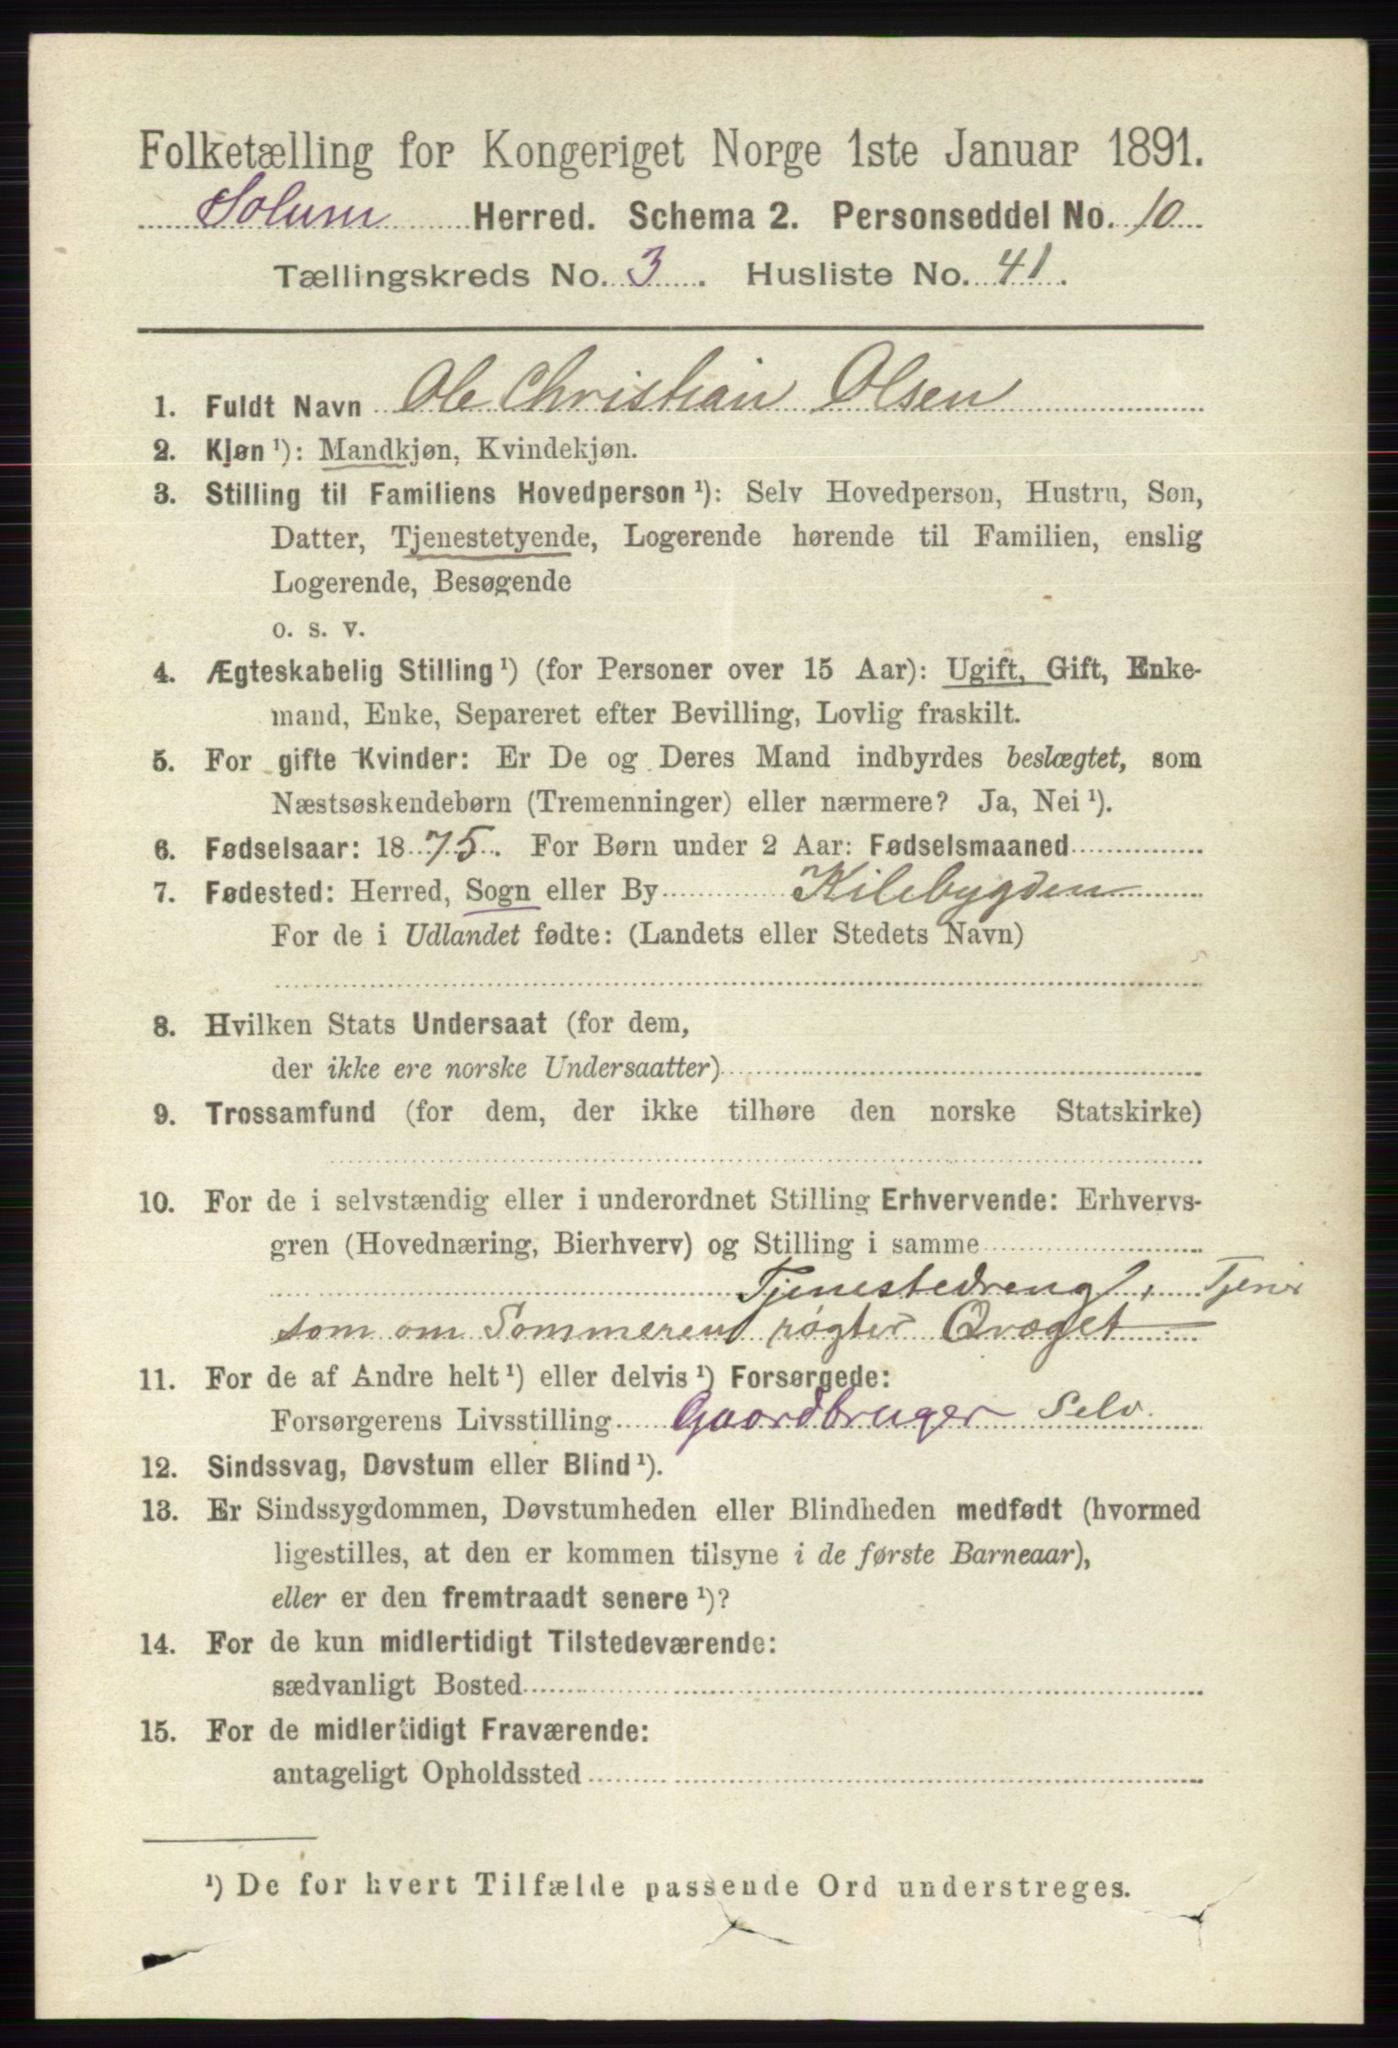 Folketælling for Kongeriget Norge 1ste Januar 1891.
Solum Herred. Schema 2. Personseddel No. 10
Tællingskreds No. 3. Husliste No. 41.
1. Fuldt Navn Ole Christian Olsen
2. Kjøn¹): Mandkjøn, Kvindekjøn.
3. Stilling til Familiens Hovedperson¹): Selv Hovedperson, Hustru, Søn,
Datter, Tjenestetyende, Logerende hørende til Familien, enslig
Logerende, Besøgende
o. s. v.
4. Ægteskabelig Stilling¹) (for Personer over 15 Aar): Ugift, Gift, Enke-
mand, Enke, Separeret efter Bevilling, Lovlig fraskilt.
5. For gifte Kvinder: Er De og Deres Mand indbyrdes beslægtet, som
Næstsøskendebørn (Tremenninger) eller nærmere? Ja, Nei¹).
6. Fødselsaar: 1875. For Børn under 2 Aar: Fødselsmaaned
7. Fødested: Herred, Sogn eller By Kilebygden
For de i Udlandet fødte: (Landets eller Stedets Navn)
8. Hvilken Stats Undersaat (for dem,
der ikke ere norske Undersaatter)
9. Trossamfund (for dem, der ikke tilhøre den norske Statskirke)
10. For de i selvstændig eller i underordnet Stilling Erhvervende: Erhvervs-
gren (Hovednæring, Bierhverv) og Stilling i samme
Tjenestedreng, Tjener
som om Sommeren røgter Qvæget
11. For de af Andre helt¹) eller delvis¹) Forsørgede:
Forsørgerens Livsstilling Gaardbruger Selv.
12. Sindssvag, Døvstum eller Blind¹).
13. Er Sindssygdommen, Døvstumheden eller Blindheden medfødt (hvormed
ligestilles, at den er kommen tilsyne i de første Barneaar),
eller er den fremtraadt senere¹)?
14. For de kun midlertidigt Tilstedeværende:
sædvanligt Bosted
15. For de midlertidigt Fraværende:
antageligt Opholdssted
¹) De for hvert Tilfælde passende Ord understreges.